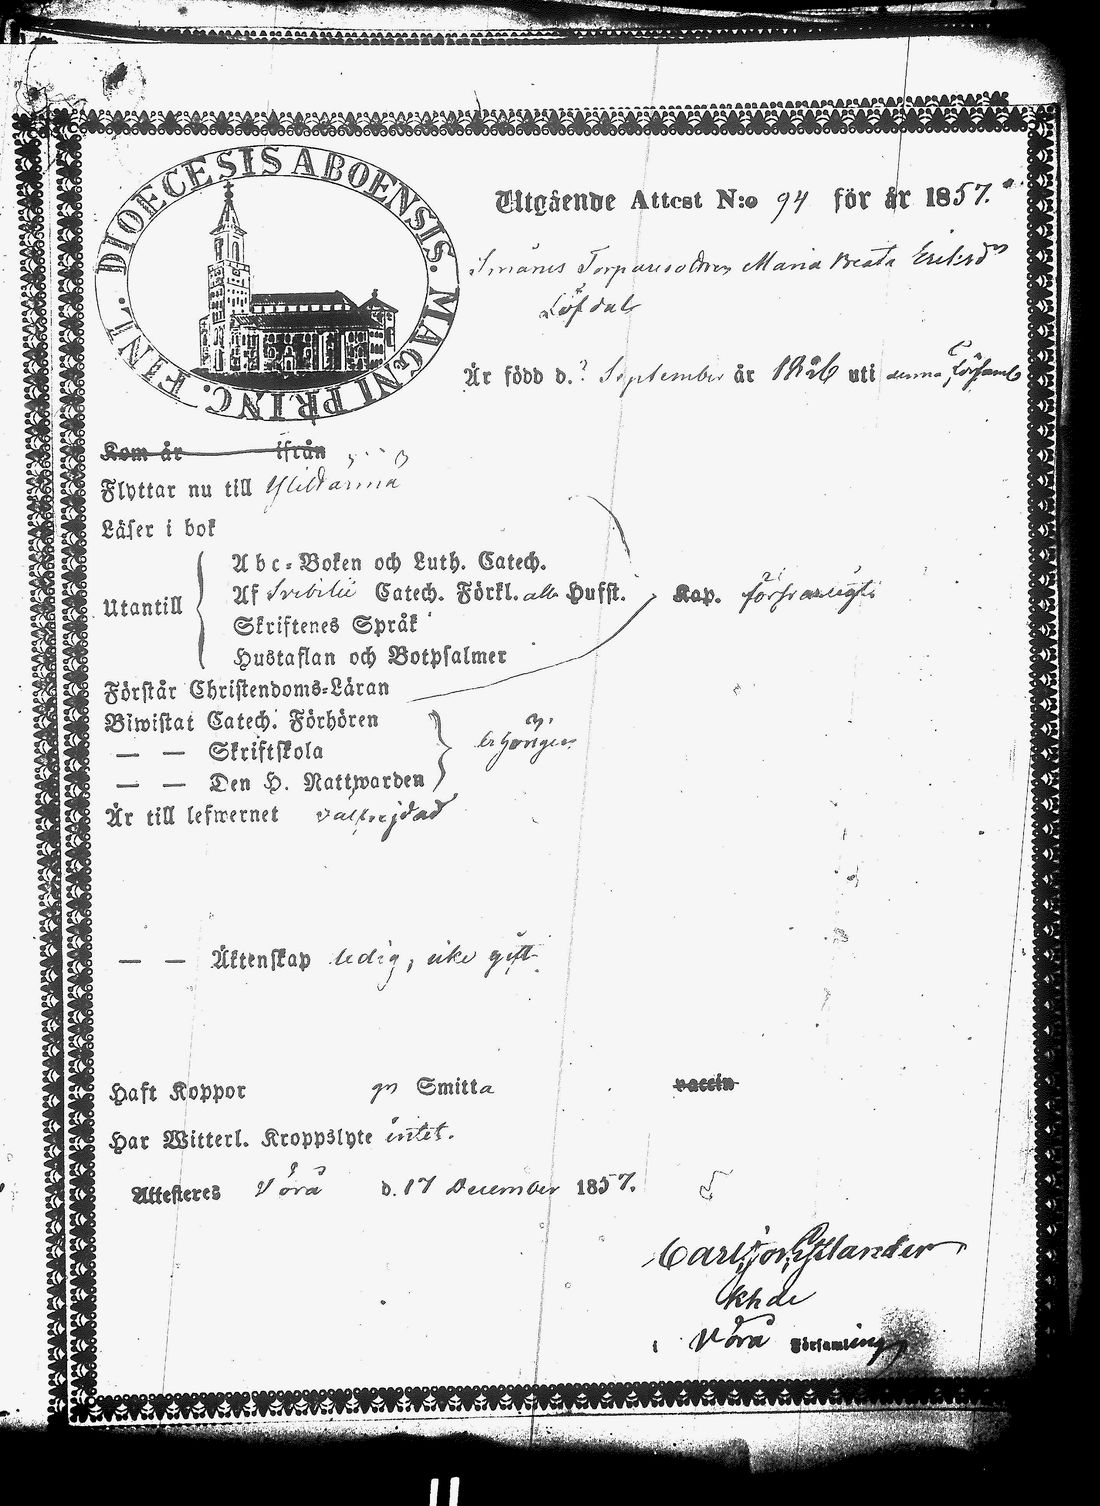 DIOECESIS ABOENSIS. MAGNI PRINC. FINL.
Utgående Attest N:o 94 för år 1857.
Maria Beata Eriksdr
Löfdal
Är född d. ? September år 1826 uti denna Församl
Kom år ifrån
Flyttar nu till Ylistarmä
Läser i bok
Utantill
Abc-Boken och Luth. Catech.
Af Svebilii Catech. Förkl. alla Hufst. Kap. försvarligt
Skriftenes Språk
Hustaflan och Botpsalmer
Förstår Christendoms-Läran
Biwistat Catech. Förhören
— — Skriftskola
— — Den H. Nattwarden
behörigen
Är till lefwernet välfrejdad
— — Äktenskap ledig, icke gift
Haft Koppor gn Smitta vaccin
Har Witterl. Kroppslyte intet.
Attesteres Vörå d. 17 December 1857.
Carl
Khde
i Vörå Församling